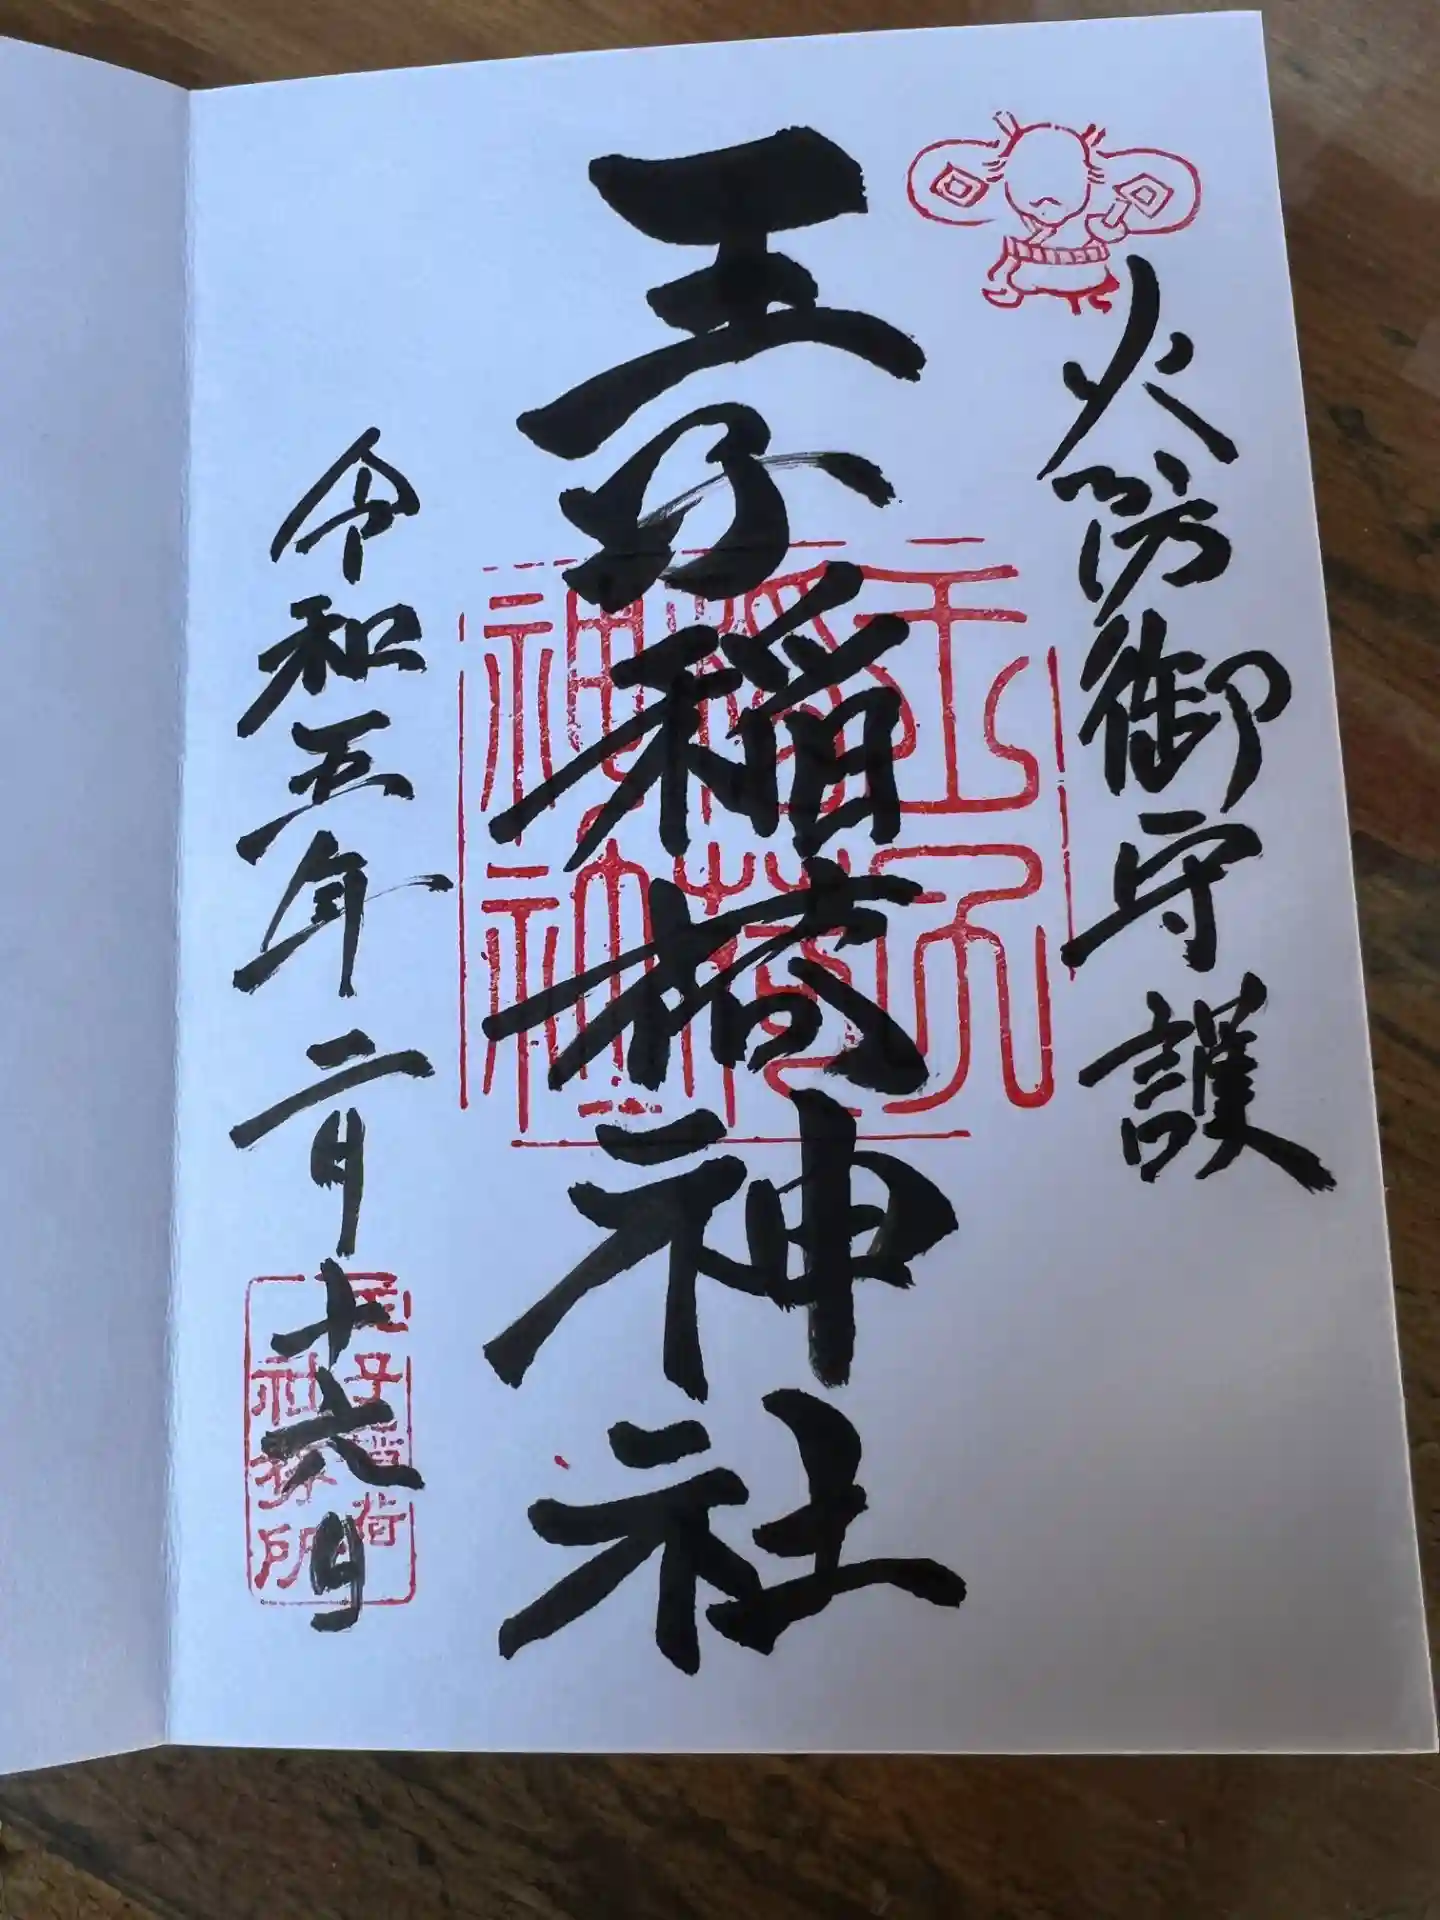 火防御守護
王子稲荷神社
王子稲荷神社
令和五年二月十六日
王子稲荷
社務所